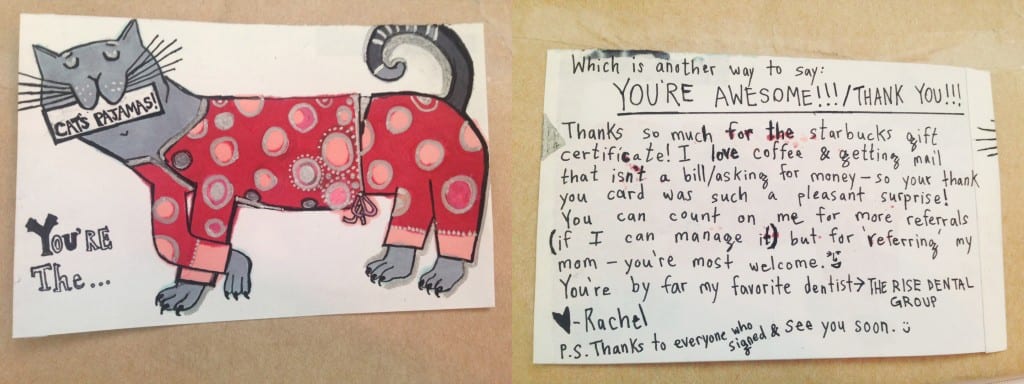 CAT'S PAJAMAS!
YOU'RE
The...
Which is another way to say:
YOU'RE AWESOME!!!/THANK YOU!!!
Thanks so much for the starbucks gift
certificate! I love coffee & getting mail
that isn't a bill/asking for money - so your thank
you card was such a pleasant surprise!
You can count on me for more referrals
(if I can manage it) but for 'referring' my
mom - you're most welcome.
You're by far my favorite dentist → THE RISE DENTAL
GROUP
♥-Rachel
P.S. Thanks to everyone who signed & see you soon.